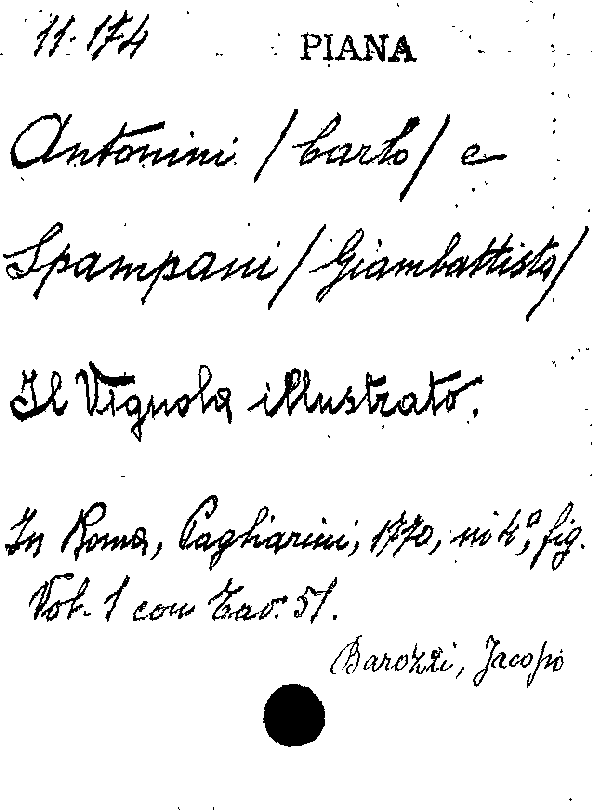 11-174 PIANA
Antonini / Carlo / e
Spampani / Giambattista /
Il Vignola illustrato.
In Roma, Pagliarini, 1770, in 4°, fig.
Vol. 1 con Tav. 51.
Barozzi, Jacopo